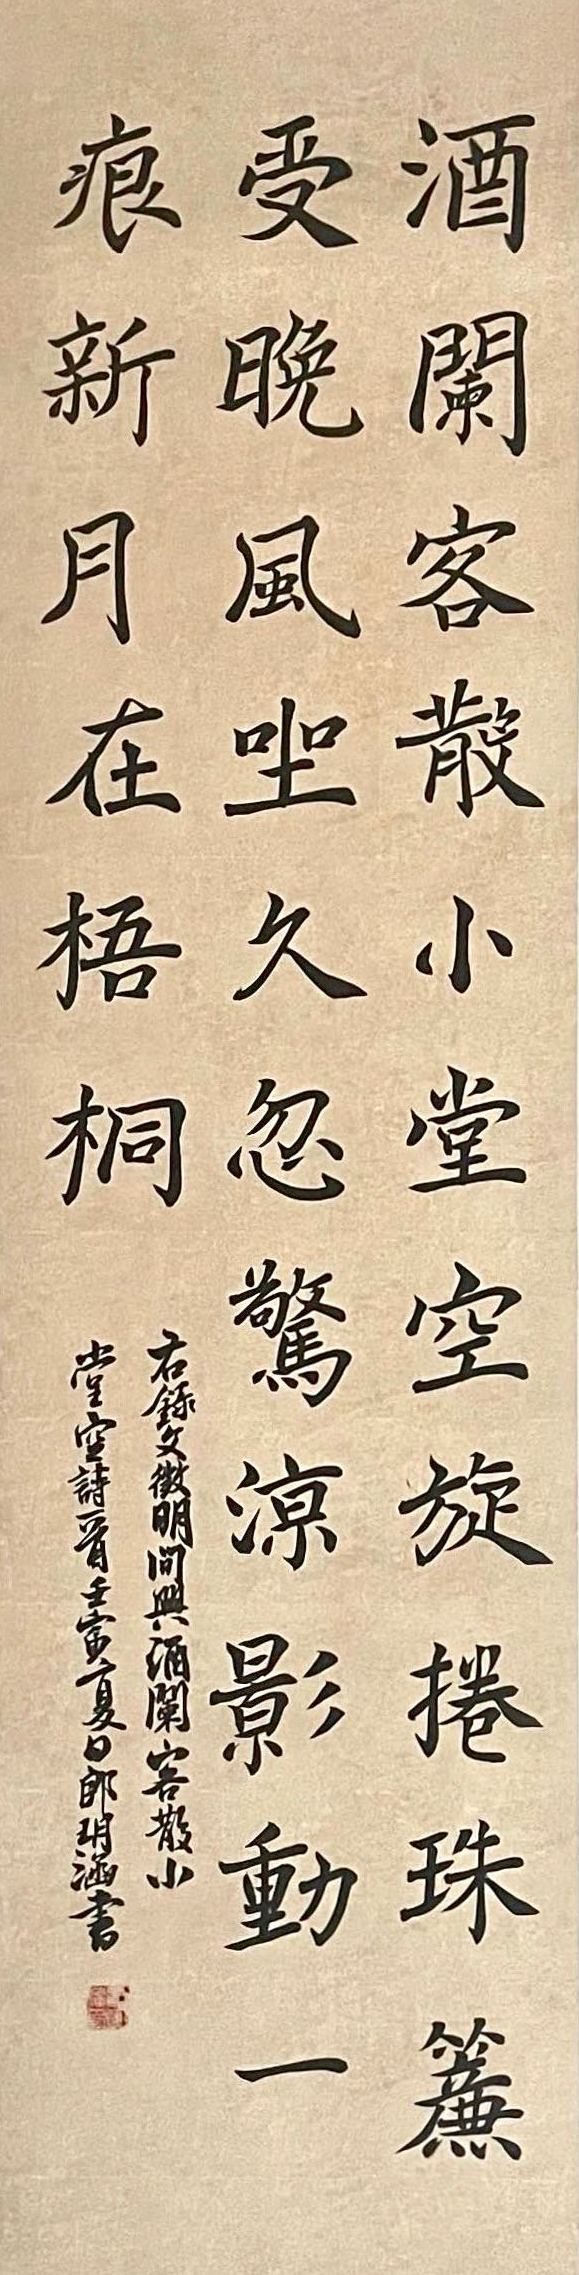 酒闌客散小堂空旋捲珠簾
受晩風坐久忽驚涼影動一
痕新月在梧桐
右錄文徵明閒興酒闌客散小
堂空詩一首壬寅夏日郎玥涵書